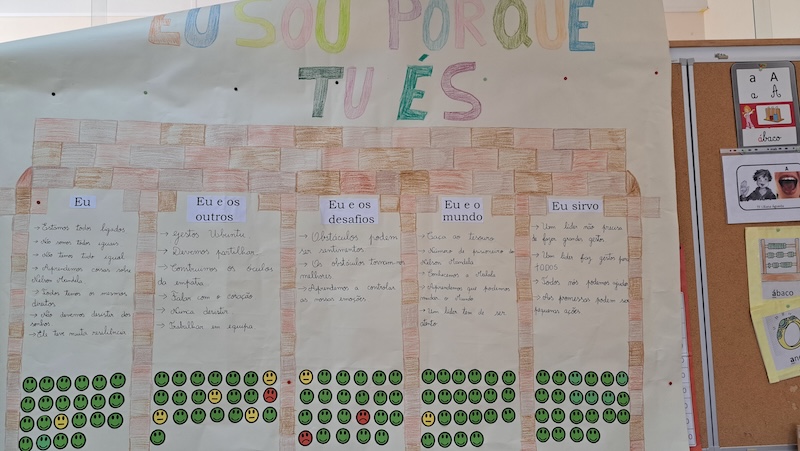 EU SOU PORQUE
TU ÉS
Eu
→ Estamos todos ligados
→ Não somos todos iguais
→ Não temos tudo igual.
→ Aprendemos coisas sobre
Nelson Mandela
→ Todos temos os mesmos
direitos
→ Não devemos desistir dos
sonhos
→ Ele teve muita resiliência
Eu e os
outros
→ Gestos Ubuntu
→ Devemos partilhar
→ Construímos os óculos
da empatia
→ Falar com o coração
→ Nunca desistir
→ Trabalhar em equipa
Eu e os
desafios
→ Obstáculos podem
ser sentimentos
→ Os obstáculos tornam-nos
melhores
→ Aprendemos a controlar
as nossas emoções
Eu e o
mundo
→ Caça ao tesouro
→ Número de prisioneiro do
Nelson Mandela
→ Conhecemos a Malala
→ Aprendemos que podemos
mudar o Mundo
→ Um líder tem de ser
atento
Eu sirvo
→ Um líder não precisa
de fazer grandes gestos
→ Um líder faz gestos para
TODOS
→ Todos nós podemos ajudar
→ As promessas podem ser
pequenas ações.
a A
a A
ábaco
ábaco